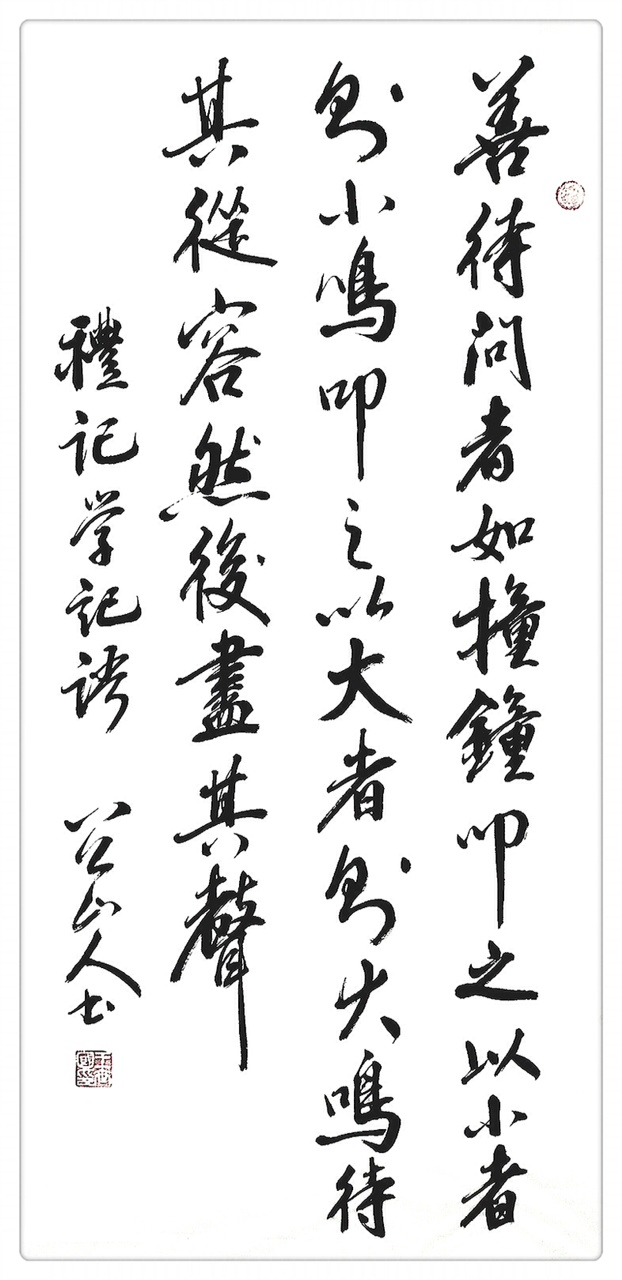 善待問者如撞鐘叩之以小者
則小鳴叩之以大者則大鳴待
其從容然後盡其聲
禮記学記語 山人书